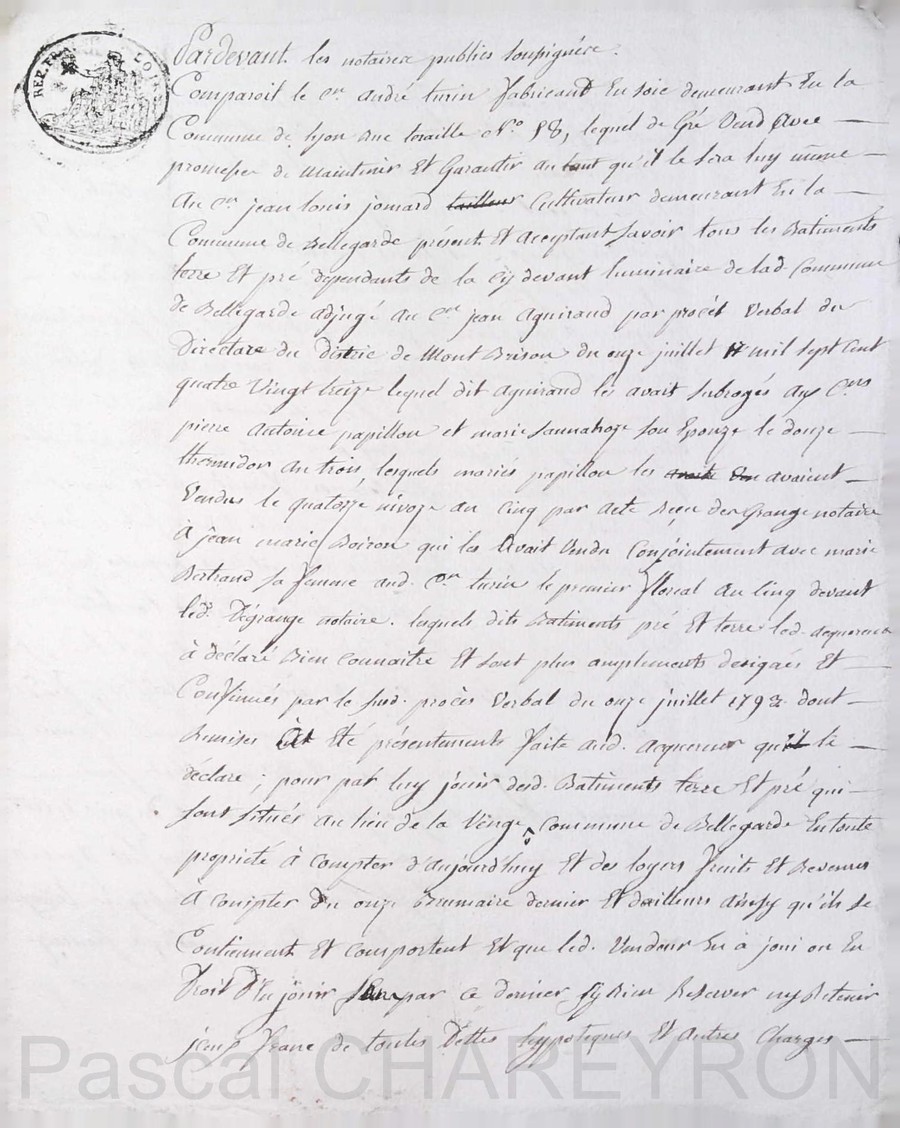 REP. FRA. LOI
Pardevant les notaires publics soussignérs.
Comparoit le Cen. andré turin fabricant En soie demeurant En la
Commune de lyon rue toraille No. 18, lequel de Gré Vend avec
promesse de maintenir Et Garantir autant qu'il le sera luy même
au Cen. jean louis jomard tailleur Cultivateur demeurant En la
Commune de Bellegarde présent Et acceptant savoir tous les Batiments
terre Et pré dependants de la Cy devant luminaire de lad. Commune
de Bellegarde adjugé au Cen. jean aguiraud par procès Verbal du
Directoire du district de Mont Brison du onze juillet mil sept Cent
quatre Vingt treize lequel dit aguiraud les avait subrogés aux Cens
pierre antoine papillon et marie sounahoze son Epouze le douze
thermidor an trois, lesquels mariés papillon les avaient
Vendus le quatorze nivoze an Cinq par acte reçu degrange notaire
à jean marie Boiron qui les avait Vendu Conjointement avec marie
Bertrand sa femme aud. Cen. turin le premier floreal an Cinq devant
led. Dégrange notaire. lesquels dits Batiments pré Et terre led. acquereur
à déclaré Bien connaitre Et sont plus amplements designés Et
Confinués par le sud. procès Verbal du onze juillet 1793. dont
Remises Et Eté présentements faite aud. acquereur qui le
déclare ; pour par luy jouir desd. Batiments terre Et pré qui
sont situés au lieu de la Commune de Bellegarde En toute
proprieté à Compter d'aujourd'huy Et des loyers fruits Et Revenus
à Compter du onze Brumaire dernier Et dailleurs ainsy qu'ils se
Contiennent Et comportent Et que led. Vendeur En à joui ou En
Droit D'en jouir par ce dernier sy Rien Reserver ny Retenir
franc de toutes Dettes hypotéques Et autres Charges
Pascal CHAREYRON